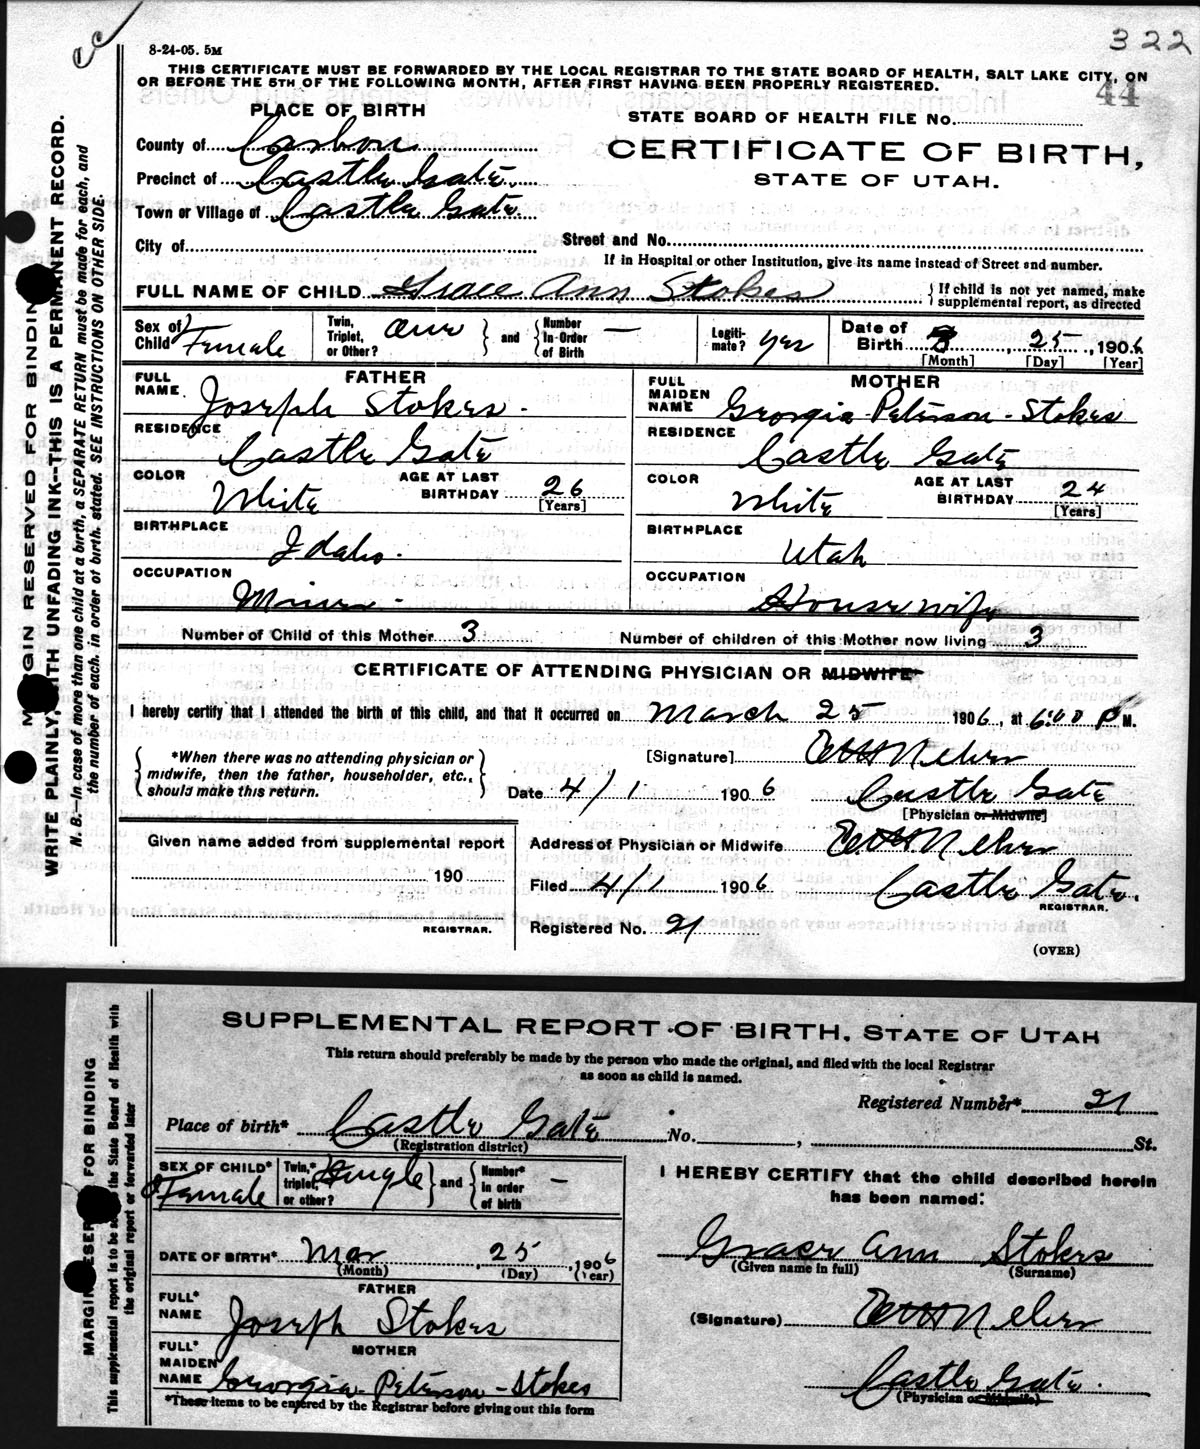 322
8-24-05. 5M
THIS CERTIFICATE MUST BE FORWARDED BY THE LOCAL REGISTRAR TO THE STATE BOARD OF HEALTH, SALT LAKE CITY, ON
OR BEFORE THE 5TH OF THE FOLLOWING MONTH, AFTER FIRST HAVING BEEN PROPERLY REGISTERED.
44
PLACE OF BIRTH
STATE BOARD OF HEALTH FILE NO.
County of Carbon
CERTIFICATE OF BIRTH,
Precinct of Castle Gate
STATE OF UTAH.
Town or Village of Castle Gate
City of
Street and No.
If in Hospital or other Institution, give its name instead of Street and number.
FULL NAME OF CHILD Grace Ann Stokes
If child is not yet named, make
supplemental report, as directed
Sex of Child Female
Twin, Triplet, or Other? one and Number In Order of Birth —
Legitimate? yes
Date of Birth 3, 25, 1906
[Month] [Day] [Year]
FATHER
FULL NAME Joseph Stokes.
RESIDENCE Castle Gate
COLOR White
AGE AT LAST BIRTHDAY 26
[Years]
BIRTHPLACE Idaho.
OCCUPATION Miner.
MOTHER
FULL MAIDEN NAME Georgia Peterson-Stokes
RESIDENCE Castle Gate
COLOR White
AGE AT LAST BIRTHDAY 24
[Years]
BIRTHPLACE Utah
OCCUPATION Housewife
Number of Child of this Mother 3
Number of children of this Mother now living 3
CERTIFICATE OF ATTENDING PHYSICIAN OR MIDWIFE
I hereby certify that I attended the birth of this child, and that it occurred on March 25 1906, at 6:00 P M.
*When there was no attending physician or
midwife, then the father, householder, etc.,
should make this return.
[Signature]
Date 4/1 1906
Castle Gate
[Physician or Midwife]
Given name added from supplemental report
190
REGISTRAR.
Address of Physician or Midwife
Filed 4/1 1906
Castle Gate.
REGISTRAR.
Registered No. 21
(OVER)
MARGIN RESERVED FOR BINDING
WRITE PLAINLY, WITH UNFADING INK--THIS IS A PERMANENT RECORD.
N. B.—In case of more than one child at a birth, a SEPARATE RETURN must be made for each, and
the number of each, in order of birth, stated. SEE INSTRUCTIONS ON OTHER SIDE.
SUPPLEMENTAL REPORT OF BIRTH, STATE OF UTAH
This return should preferably be made by the person who made the original, and filed with the local Registrar
as soon as child is named.
Registered Number* 21
Place of birth* Castle Gate No. , St.
(Registration district)
SEX OF CHILD* Female
Twin,* triplet, or other? Single and Number* in order of birth —
I HEREBY CERTIFY that the child described herein
has been named:
DATE OF BIRTH* Mar, 25, 1906
(Month) (Day) (Year)
Grace Ann Stokes
(Given name in full) (Surname)
FATHER
FULL* NAME Joseph Stokes
(Signature)
MOTHER
FULL* MAIDEN NAME Georgia Peterson-Stokes
Castle Gate.
(Physician or Midwife)
*These items to be entered by the Registrar before giving out this form
MARGIN RESERVED FOR BINDING
This supplemental report is to be sent to the State Board of Health with
the original report or forwarded later